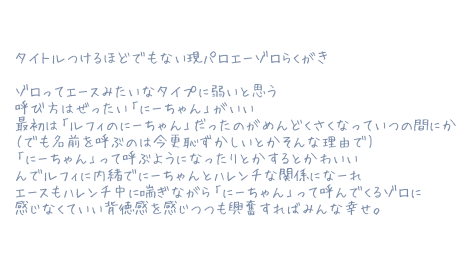 タイトルつけるほどでもない現パロエーゾロらくがき
ゾロってエースみたいなタイプに弱いと思う
呼び方はぜったい「にーちゃん」がいい
最初は「ルフィのにーちゃん」だったのがめんどくさくなっていつの間にか
(でも名前を呼ぶのは今更恥ずかしいとかそんな理由で)
「にーちゃん」って呼ぶようになったりとかするとかわいい
んでルフィに内緒でにーちゃんとハレンチな関係になーれ
エースもハレンチ中に喘ぎながら「にーちゃん」って呼んでくるゾロに
感じなくていい背徳感を感じつつも興奮すればみんな幸せ。